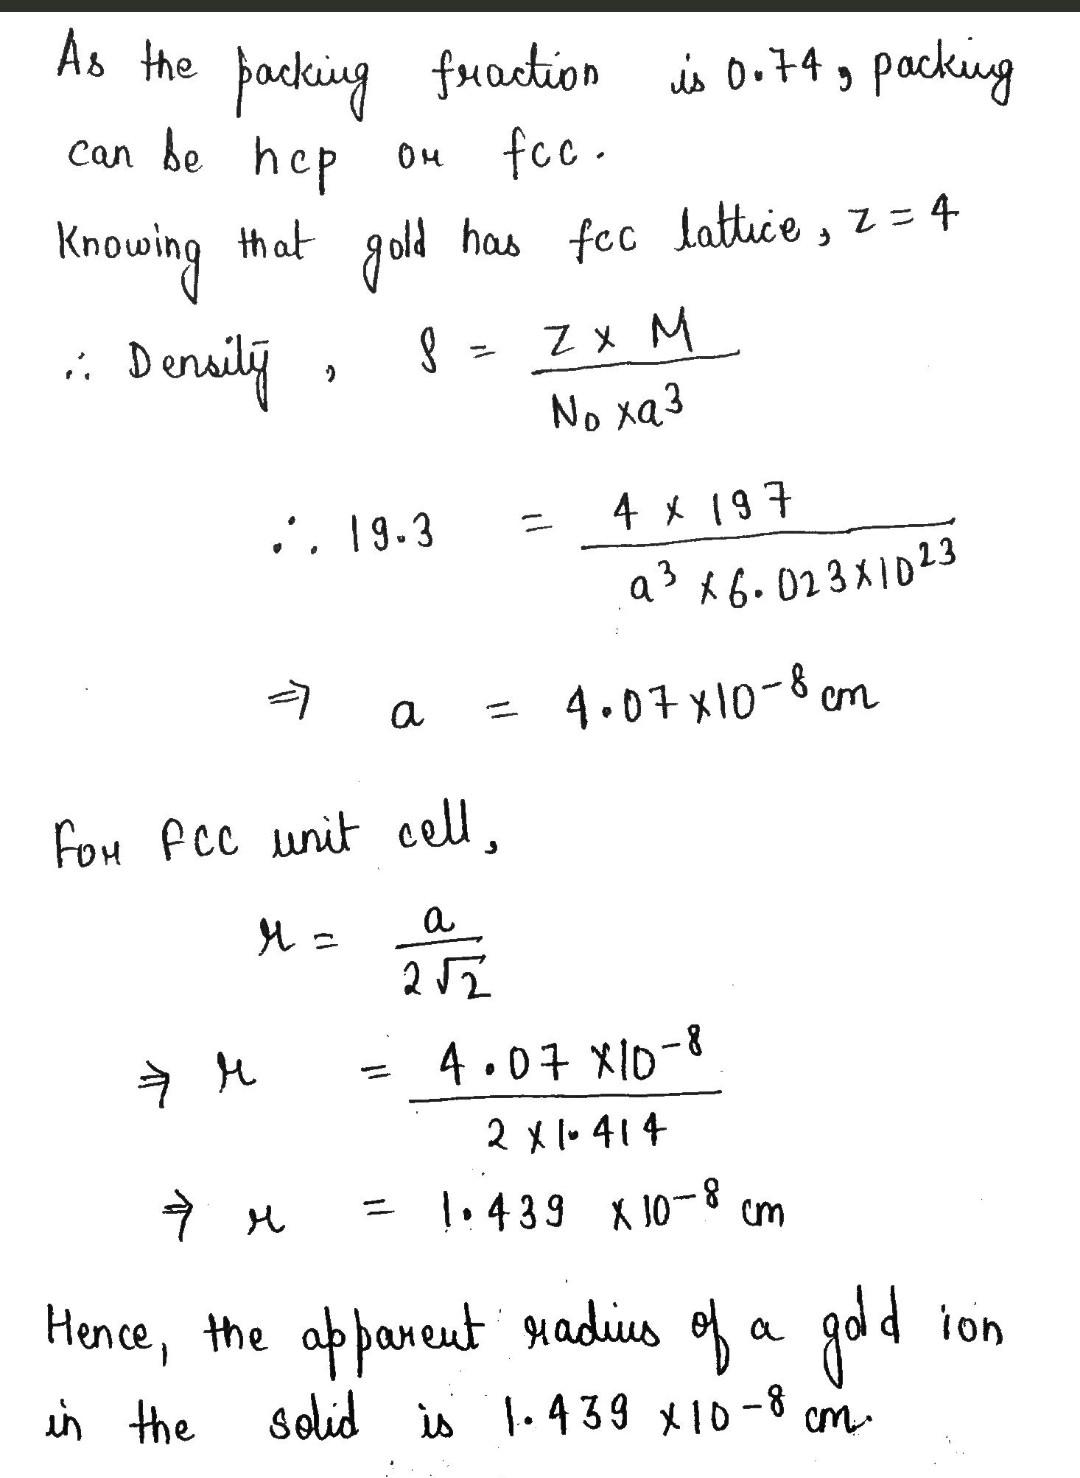 As the packing fraction is 0.74, packing
can be hcp or fcc.
Knowing that gold has fcc lattice, z = 4
∴ Density, ρ = Z × M / N₀ × a³
∴ 19.3 = 4 × 197 / a³ × 6.023 × 10²³
⇒ a = 4.07 × 10⁻⁸ cm
For fcc unit cell,
r = a / 2√2
⇒ r = 4.07 × 10⁻⁸ / 2 × 1.414
⇒ r = 1.439 × 10⁻⁸ cm
Hence, the apparent radius of a gold ion
in the solid is 1.439 × 10⁻⁸ cm.